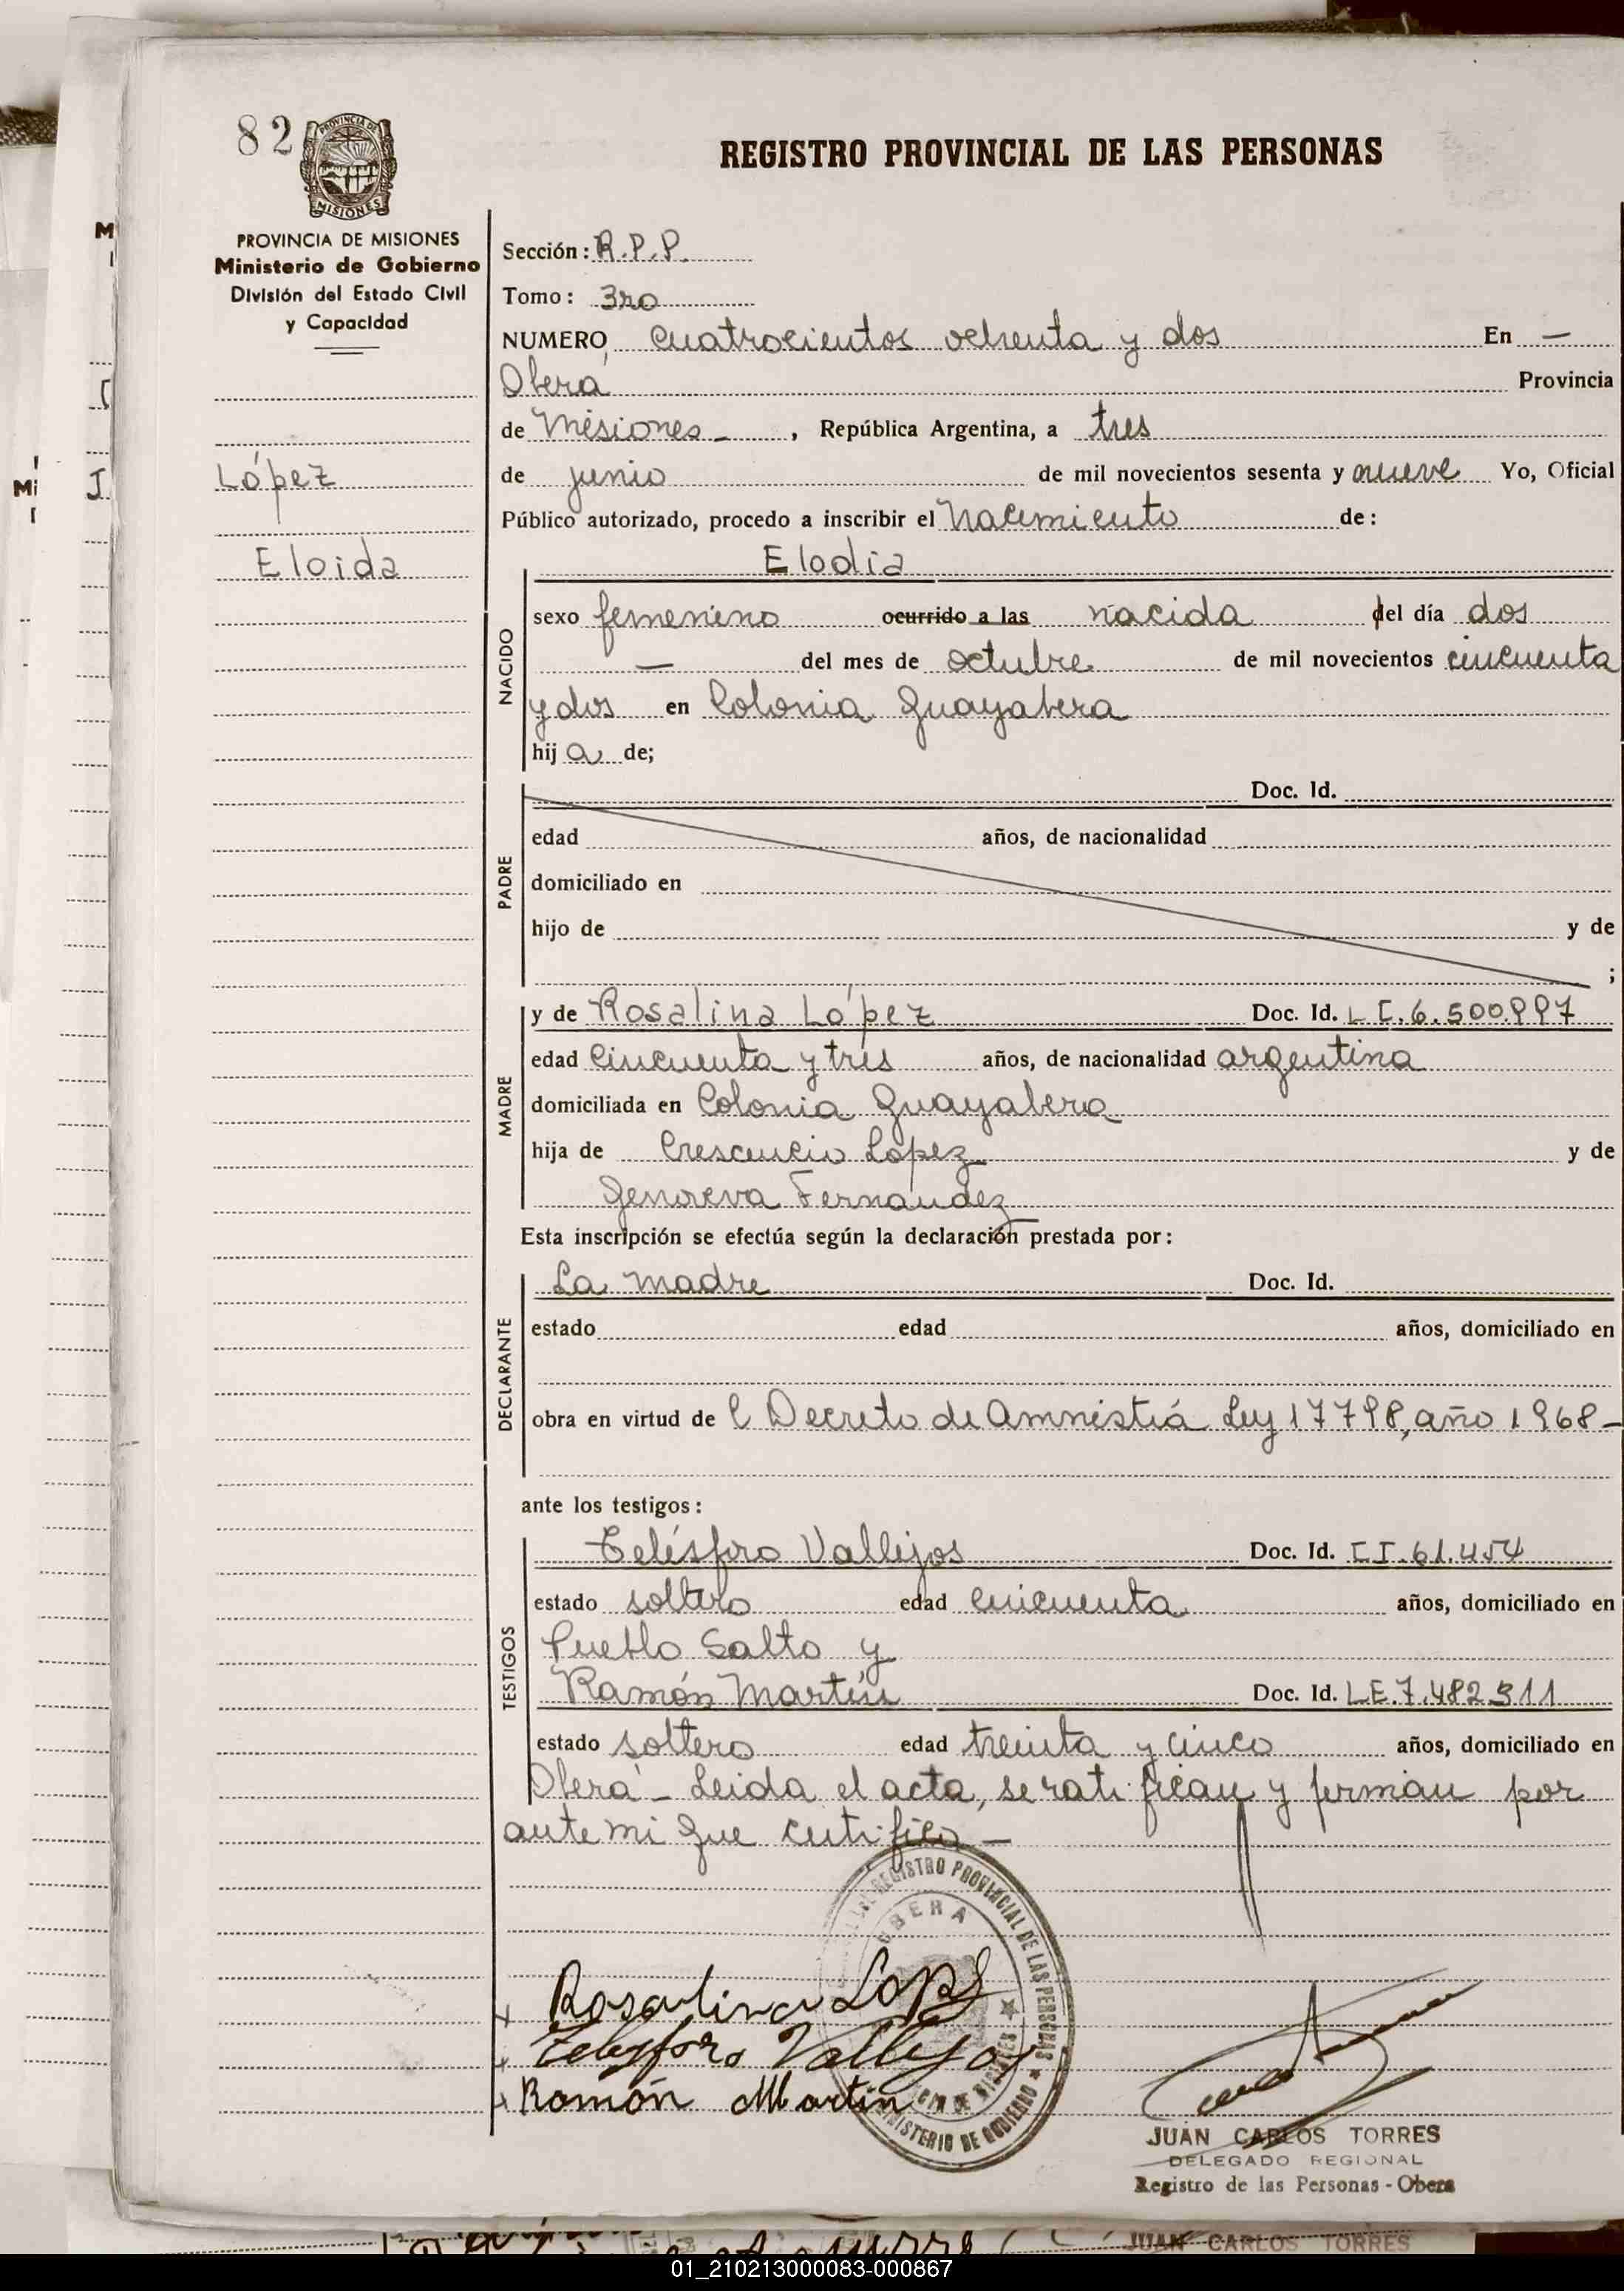 82
PROVINCIA DE
MISIONES
REGISTRO PROVINCIAL DE LAS PERSONAS
PROVINCIA DE MISIONES
Ministerio de Gobierno
División del Estado Civil
y Capacidad
López
Eloida
Sección: R.P.P.
Tomo: 3ro
NUMERO cuatrocientos ochenta y dos En —
Oberá Provincia
de Misiones - , República Argentina, a tres
de junio de mil novecientos sesenta y nueve Yo, Oficial
Público autorizado, procedo a inscribir el Nacimiento de:
NACIDO
Elodia
sexo femenino ocurrido a las nacida del día dos
— del mes de octubre de mil novecientos cincuenta
y dos en Colonia Guayabera
hija de;
PADRE
Doc. Id.
edad años, de nacionalidad
domiciliado en
hijo de y de
;
MADRE
y de Rosalina López Doc. Id. L C. 6.500.997
edad cincuenta y tres años, de nacionalidad argentina
domiciliada en Colonia Guayabera
hija de Crescencio López y de
Genoveva Fernandez
Esta inscripción se efectúa según la declaración prestada por:
DECLARANTE
La madre Doc. Id.
estado edad años, domiciliado en
obra en virtud de l Decreto de Amnistiá Ley 17798, año 1968-
ante los testigos:
TESTIGOS
Telésforo Vallejos Doc. Id. C I. 61.454
estado soltero edad cincuenta años, domiciliado en
Pueblo Salto y
Ramón Martín Doc. Id. LE. 7.482.311
estado soltero edad treinta y cinco años, domiciliado en
Oberá - Leida el acta, se ratifican y firman por
ante mi que certifico —
REGISTRO PROVINCIAL DE LAS PERSONAS
OBERA
MINISTERIO DE GOBIERNO
Rosalina Lopez
Telesforo Vallejos
Ramón Martín
JUAN CARLOS TORRES
DELEGADO REGIONAL
Registro de las Personas - Obera
JUAN CARLOS TORRES
01_210213000083-000867